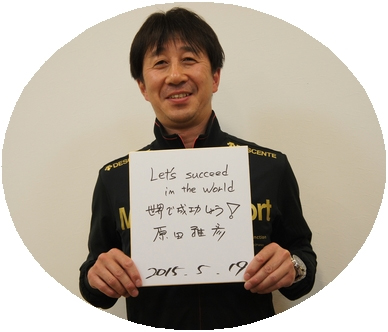 DESCENTE
DESCENTE
Let's succeed
in the world
世界で成功しよう!
原田雅彦
2015.5.19